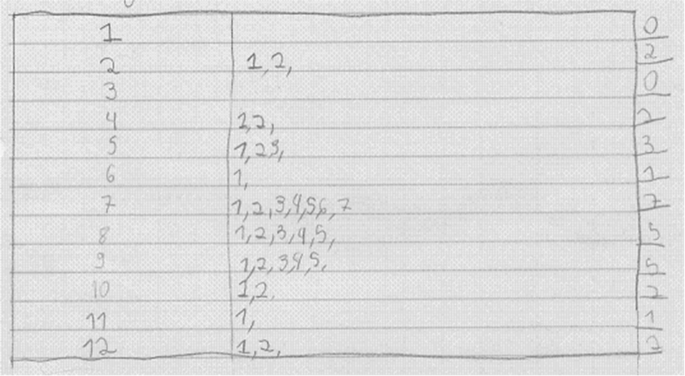 1 0
2 1,2, 2
3 0
4 1,2, 2
5 1,2,3, 3
6 1, 1
7 1,2,3,4,5,6,7 7
8 1,2,3,4,5, 5
9 1,2,3,4,5, 5
10 1,2. 2
11 1, 1
12 1,2, 2